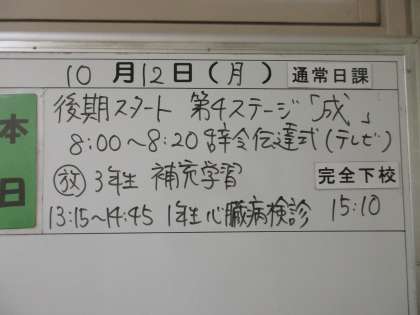 10月12日(月) 通常日課
本日
後期スタート 第4ステージ「成」
8:00～8:20 辞令伝達式(テレビ)
放 3年生 補充学習 完全下校
13:15～14:45 1年生心臓病検診 15:10